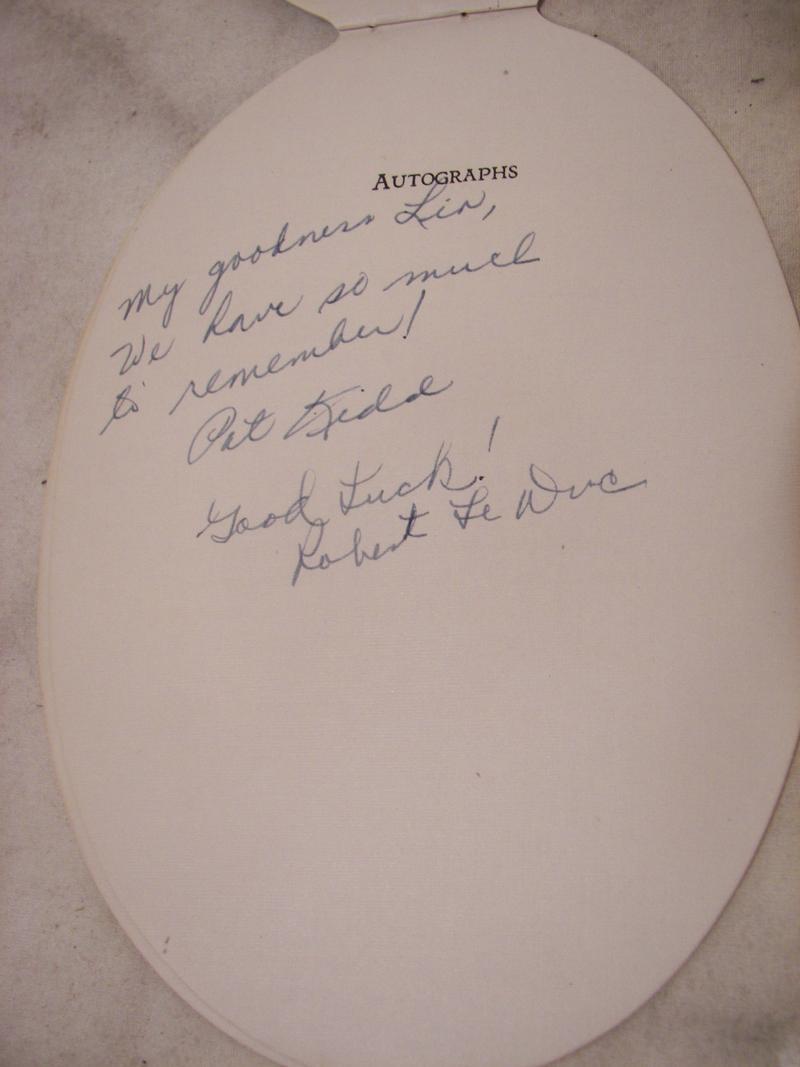 AUTOGRAPHS
My goodness Lin,
We have so much
to remember!
Pat Kidd
Good Luck!
Robert Le Duc